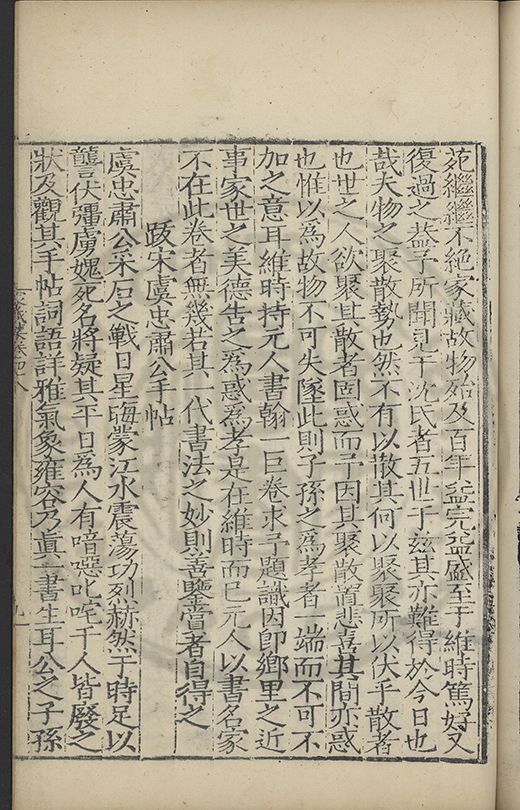 苑繼繼不絕家藏故物殆及百年益完益盛至于維時篤好又
復過之蓋予所聞見于沈氏者五世于兹其亦難得於今日也
哉夫物之聚散勢也然不有以散其何以聚聚所以伏乎散者
也世之人欲聚其散者固惑而予因其聚散着悲喜其間亦惑
也惟以爲故物不可失墜此則子孫之爲孝者一端而不可不
加之意耳維時持元人書翰一巨卷求予題識因即鄉里之近
事家世之美德告之爲惑爲孝是在維時而已元人以書名家
不在此卷者無幾若其一代書法之妙則善鑒賞者自得之
跋宋虞忠肅公手帖
虞忠肅公采石之戰日星晦蒙江水震蕩功烈赫然于時足以
讋伏彊虜媿死名將疑其平日爲人有喑噁叱咤千人皆廢之
狀及觀其手帖詞語詳雅氣象雍容乃眞一書生耳公之子孫